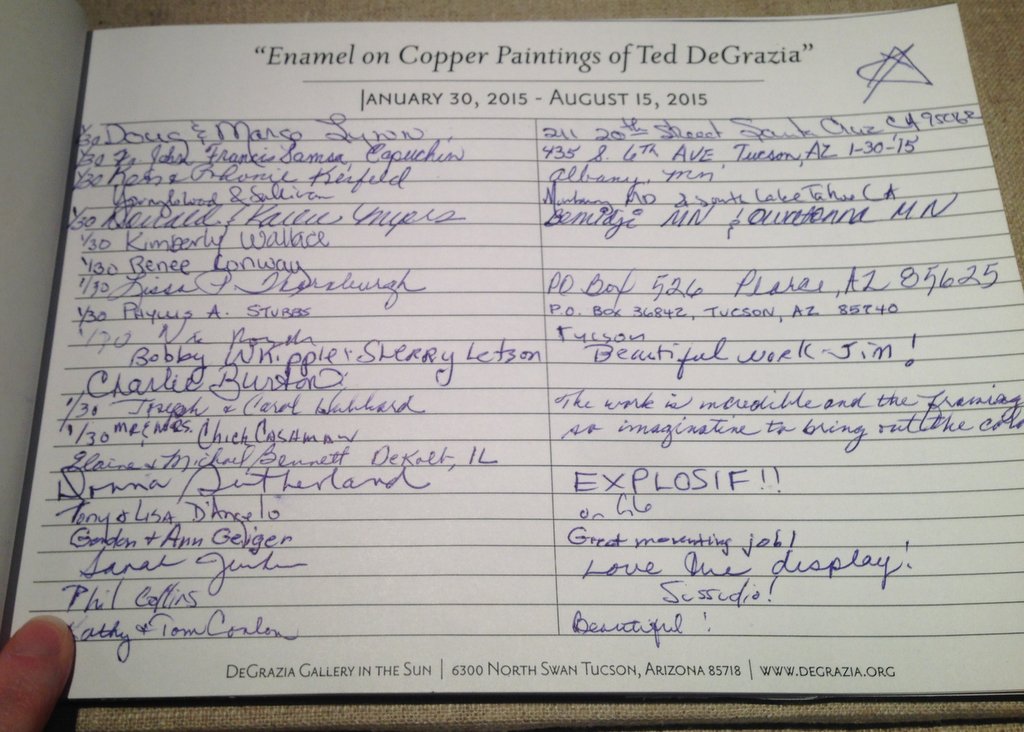 "Enamel on Copper Paintings of Ted DeGrazia"
January 30, 2015 - August 15, 2015
1/30 Doug & Margo 211 20th Street Santa Cruz CA 95062
1/30 Fr. John Francis Samsa, Capuchin 435 S. 6TH AVE, Tucson, AZ 1-30-15
1/30 & Kerfeld Albany, mn
& Sullivan MD & South Lake Tahoe CA
1/30 & Karen Myers Bemidji MN & Owatonna MN
1/30 Kimberly Wallace
1/30 Renee Conway
1/30 Lissa Thornburgh PO Box 526 Pearce, AZ 85625
1/30 Phyllis A. STUBBS P.O. Box 36842, TUCSON, AZ 85740
1/30 Tucson
Bobby Whipple & SHERRY Letson Beautiful work - Jim!
Charlie Burton
1/30 Joseph & Carol Hubbard The work is incredible and the framing
1/30 MR & MRS. Chick CASAMAN so imaginative to bring out the colo
Elaine & Michael Bennett DeKalb, IL
Donna Sutherland EXPLOSIF!!
Tony & LISA D'Angelo
Gordon & Ann Geiger Great mounting job!
Sarah Love the display!
Phil Collins Sussudio!
Kathy & Tom Conlon Beautiful!
DeGrazia Gallery in the Sun | 6300 North Swan Tucson, Arizona 85718 | www.degrazia.org